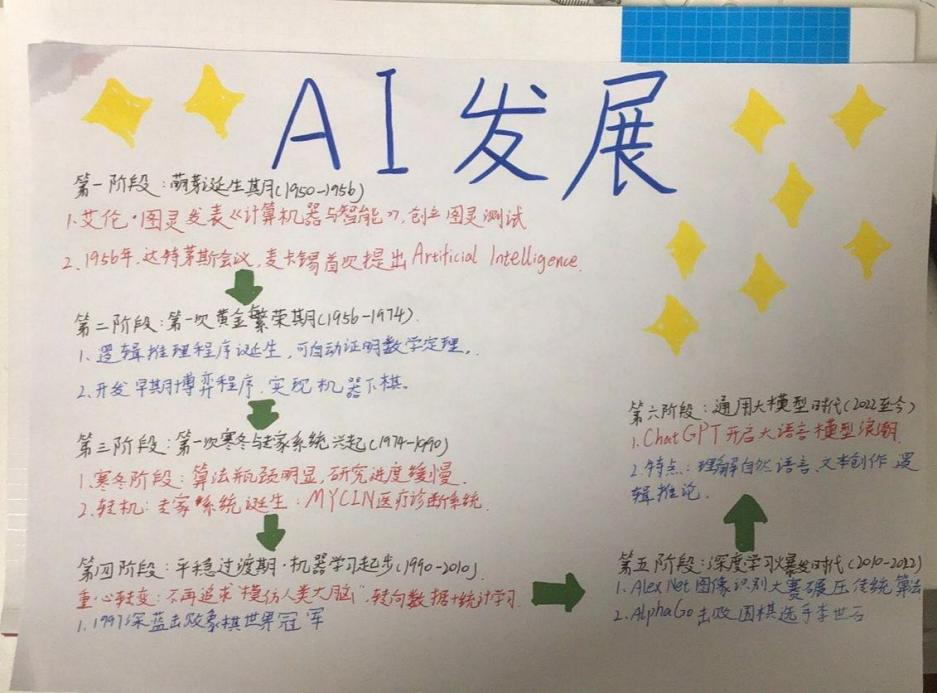 AI发展
第一阶段:萌芽诞生其月(1950-1956)
1.艾伦·图灵发表《计算机器与智能》,创立图灵测试
2.1956年,达特茅斯会议,麦卡锡首次提出Artificial Intelligence.
第二阶段:第一次黄金繁荣期(1956-1974).
1.逻辑推理程序诞生,可自动证明数学定理.
2.开发早期博弈程序.实现机器下棋。
第三阶段:第一次寒冬与专家系统兴起(1974-1990)
1.寒冬阶段:算法瓶颈明显,研究进度缓慢.
2.转机:专家系统诞生:MYCIN医疗诊断系统.
第四阶段:平稳过渡期·机器学习起步(1990-2010).
重心转变:不再追求"模仿人类大脑",转向数据+统计学习.
1.1997深蓝击败象棋世界冠军
第五阶段:深度学习爆发时代(2010-2022)
1.AlexNet图像识别大赛碾压传统算法
2.AlphaGo击败围棋选手李世石
第六阶段:通用大模型时代(2022至今)
1.ChatGPT开启大语言模型浪潮.
2.特点:理解自然语言.文本创作.逻
辑推论.